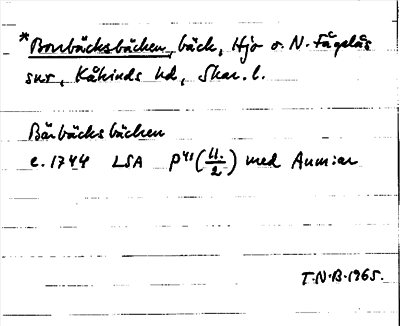 *Borrbäcksbäcken, bäck, Hjo o. N. Fågelås
snr, Kåkinds hd, Skar. l.
Bärbäcksbäcken
c. 1744 LSA P41 (11./2) med Anm:ar
T.N.B. 1965.